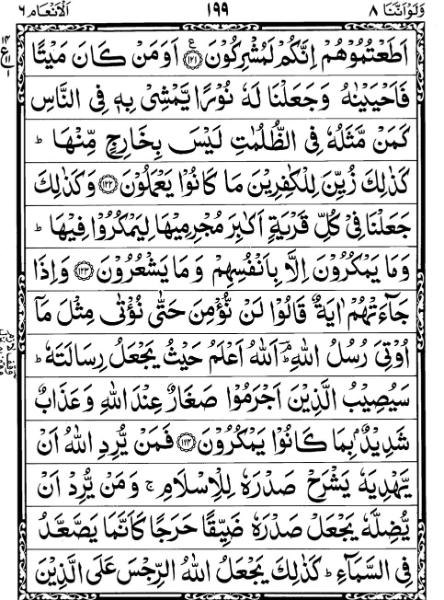 وَلَوْ اَنَّنَا ٨ ١٩٩ اَلْاَنْعَام ٦
اَطَعْتُمُوْهُمْ اِنَّكُمْ لَمُشْرِكُوْنَ ﴿١٢١﴾ اَوَمَنْ كَانَ مَيْتًا
فَاَحْيَيْنٰهُ وَجَعَلْنَا لَهٗ نُوْرًا يَّمْشِىْ بِهٖ فِى النَّاسِ
كَمَنْ مَّثَلُهٗ فِى الظُّلُمٰتِ لَيْسَ بِخَارِجٍ مِّنْهَا ؕ
كَذٰلِكَ زُيِّنَ لِلْكٰفِرِيْنَ مَا كَانُوْا يَعْمَلُوْنَ ﴿١٢٢﴾ وَكَذٰلِكَ
جَعَلْنَا فِىْ كُلِّ قَرْيَةٍ اَكٰبِرَ مُجْرِمِيْهَا لِيَمْكُرُوْا فِيْهَا ؕ
وَمَا يَمْكُرُوْنَ اِلَّا بِاَنْفُسِهِمْ وَمَا يَشْعُرُوْنَ ﴿١٢٣﴾ وَاِذَا
جَآءَتْهُمْ اٰيَةٌ قَالُوْا لَنْ نُّؤْمِنَ حَتّٰى نُؤْتٰى مِثْلَ مَآ
اُوْتِىَ رُسُلُ اللّٰهِ ؔۘؕ اَللّٰهُ اَعْلَمُ حَيْثُ يَجْعَلُ رِسَالَتَهٗ ؕ
سَيُصِيْبُ الَّذِيْنَ اَجْرَمُوْا صَغَارٌ عِنْدَ اللّٰهِ وَعَذَابٌ
شَدِيْدٌۢ بِمَا كَانُوْا يَمْكُرُوْنَ ﴿١٢٤﴾ فَمَنْ يُّرِدِ اللّٰهُ اَنْ
يَّهْدِيَهٗ يَشْرَحْ صَدْرَهٗ لِلْاِسْلَامِ ۚ وَمَنْ يُّرِدْ اَنْ
يُّضِلَّهٗ يَجْعَلْ صَدْرَهٗ ضَيِّقًا حَرَجًا كَاَنَّمَا يَصَّعَّدُ
فِى السَّمَآءِ ؕ كَذٰلِكَ يَجْعَلُ اللّٰهُ الرِّجْسَ عَلَى الَّذِيْنَ